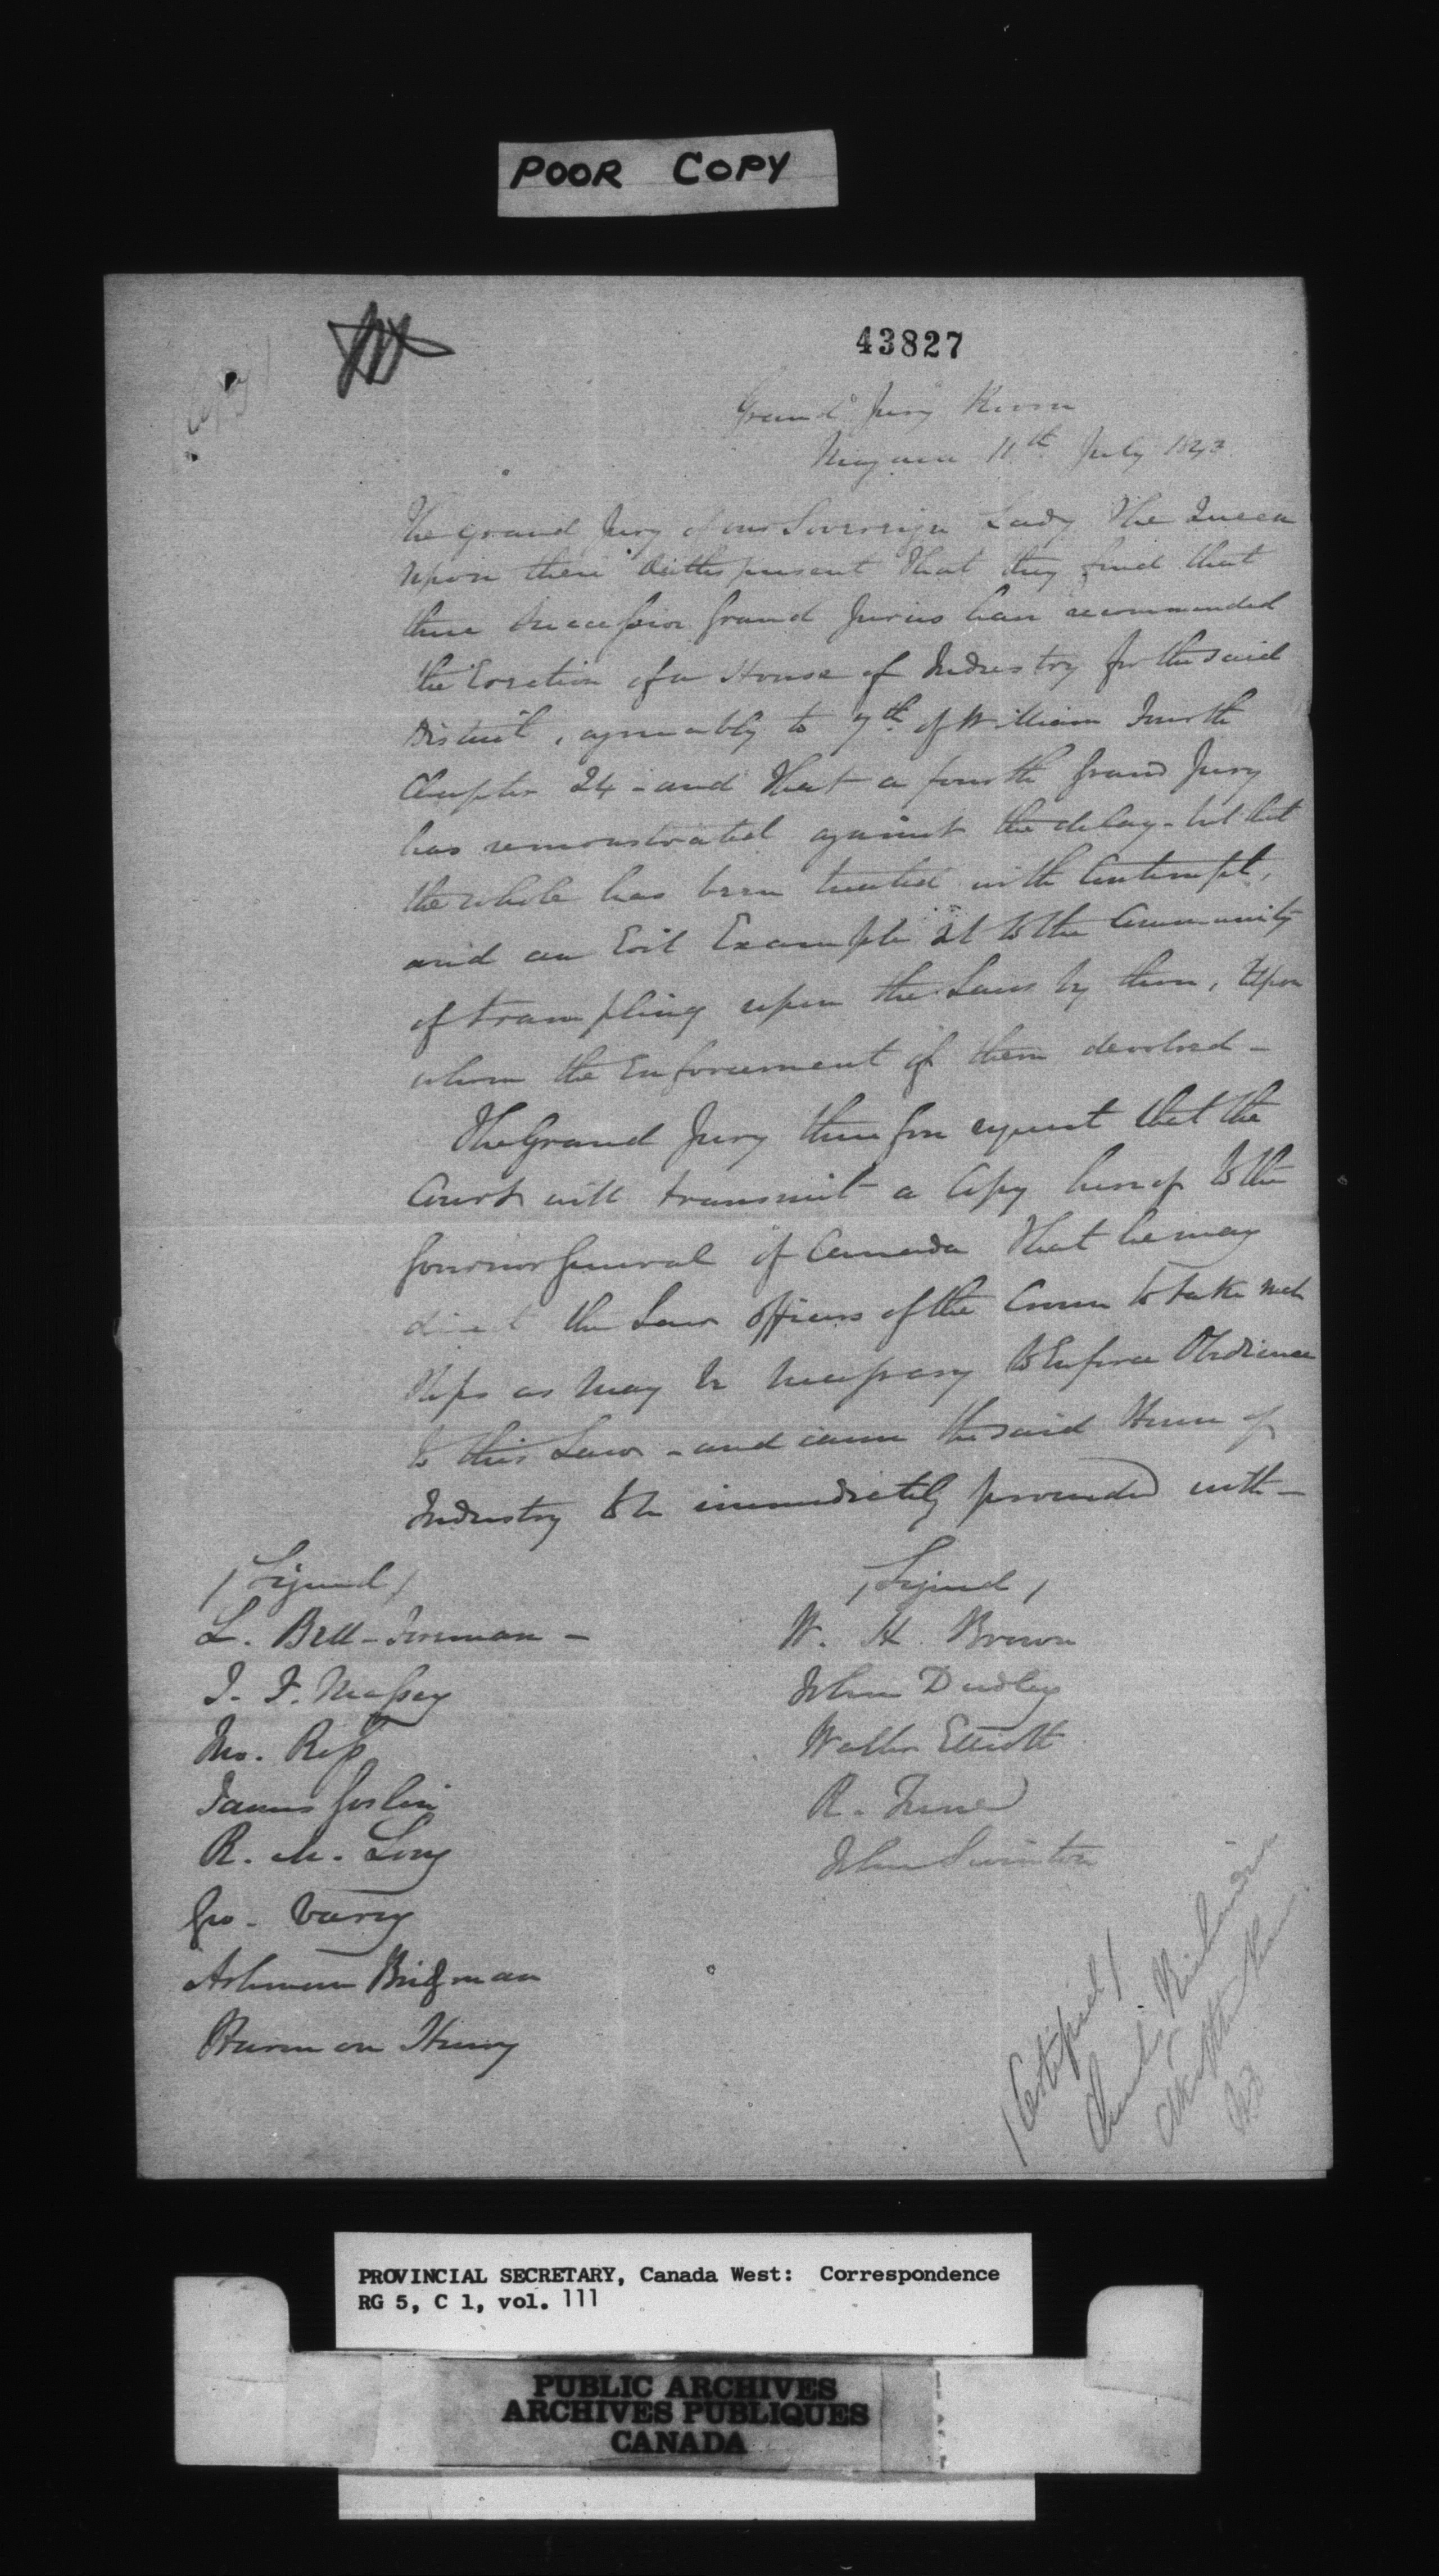 POOR COPY
43827
(Copy)
Grand Jury Room
Niagara 11th July 1843
The Grand Jury of our Sovereign Lady the Queen
Upon their Oaths present that they find that
three successive Grand Juries have recommended
the Erection of a House of Industry for the said
District, agreeably to 7th of William Fourth
Chapter 24 - and that a fourth Grand Jury
has remonstrated against the delay - but that
the whole has been treated with Contempt,
and an Evil Example set to the Community
of trampling upon the Laws by them, Upon
whom the Enforcement of them devolved -
The Grand Jury therefore request that the
Court will transmit a Copy hereof to the
Governor General of Canada that he may
direct the Law Officers of the Crown to take such
Steps as may be necessary to Enforce Obedience
to this Law - and cause the said House of
Industry to be immediately proceeded with -
(Signed)
L. Bell - Foreman -
I. F. Massey
Jno. Ross
James Joslin
R. M. Long
Geo. Varey
Bridgman
Harmon Henry
(Signed)
W. H. Brown
John Dudley
Walter Elliott
R.
John Swinton
(Certified)
Charles Richardson
Clk of the Peace
ND
PROVINCIAL SECRETARY, Canada West: Correspondence
RG 5, C 1, vol. 111
PUBLIC ARCHIVES
ARCHIVES PUBLIQUES
CANADA